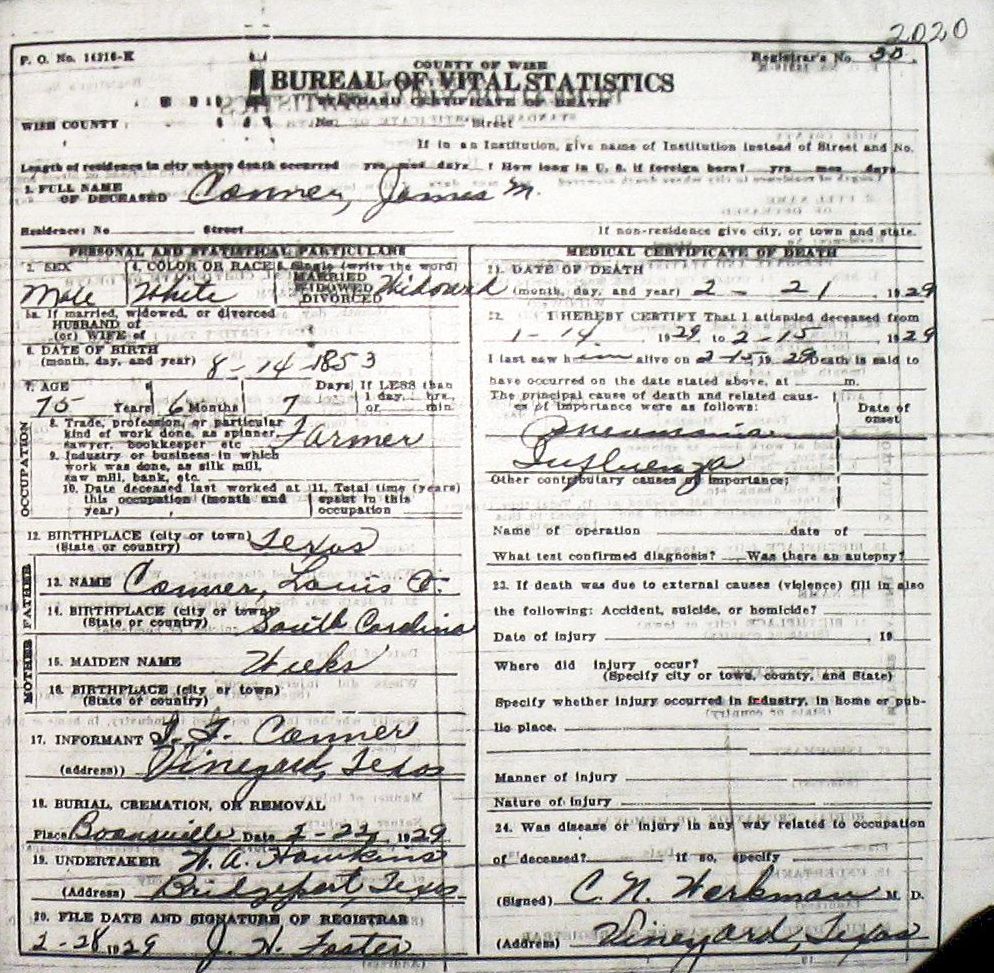 2020
F. O. No. 14216-K
COUNTY OF WISE
Registrar's No. 20.
BUREAU OF VITAL STATISTICS
STANDARD CERTIFICATE OF DEATH
WISE COUNTY No. Street
If in an Institution, give name of Institution instead of Street and No.
Length of residence in city where death occurred yrs mos days ? How long in U. S. if foreign born? yrs mos days
1. FULL NAME OF DECEASED Conner, James M.
Residence: No Street If non-residence give city, or town and state.
PERSONAL AND STATISTICAL PARTICULARS
2. SEX Male
4. COLOR OR RACE White
5. Single (write the word) MARRIED WIDOWED DIVORCED Widowed
5a. If married, widowed, or divorced
HUSBAND of
(or) WIFE of
6. DATE OF BIRTH
(month, day, and year) 8-14-1853
7. AGE 75 Years 6 Months 7 Days If LESS than 1 day, hrs, or min.
OCCUPATION
8. Trade, profession, or particular kind of work done, as spinner, sawyer, bookkeeper etc Farmer
9. Industry or business in which work was done, as silk mill, saw mill, bank, etc.
10. Date deceased last worked at this occupation (month and year)
11. Total time (years) spent in this occupation
12. BIRTHPLACE (city or town) (State or country) Texas
FATHER
13. NAME Conner, Louis
14. BIRTHPLACE (city or town) (State or country) South Carolina
MOTHER
15. MAIDEN NAME Weeks
16. BIRTHPLACE (city or town)
(State or country)
17. INFORMANT Conner
(address)) Vineyard, Texas
18. BURIAL, CREMATION, OR REMOVAL
Place Boonsville Date 2-22, 1929
19. UNDERTAKER W. A. Hawkins
(Address) Bridgeport, Texas.
20. FILE DATE AND SIGNATURE OF REGISTRAR
2-28 1929 J. W. Foster
MEDICAL CERTIFICATE OF DEATH
21. DATE OF DEATH
(month, day, and year) 2-21 1929
22. I HEREBY CERTIFY That I attended deceased from
1-14 1929 to 2-15, 1929
I last saw him alive on 2-15, 19 29 Death is said to
have occurred on the date stated above, at m.
The principal cause of death and related causes of importance were as follows:
Date of onset
Pneumonia
Influenza
Other contributary causes of importance;
Name of operation date of
What test confirmed diagnosis? Was there an autopsy?
23. If death was due to external causes (violence) fill in also
the following: Accident, suicide, or homicide?
Date of injury , 19
Where did injury occur?
(Specify city or town, county, and State)
Specify whether injury occurred in industry, in home or pub-
lic place.
Manner of injury
Nature of injury
24. Was disease or injury in any way related to occupation
of deceased? if so, specify
(Signed) C. N. Workman M. D.
(Address) Vineyard, Texas